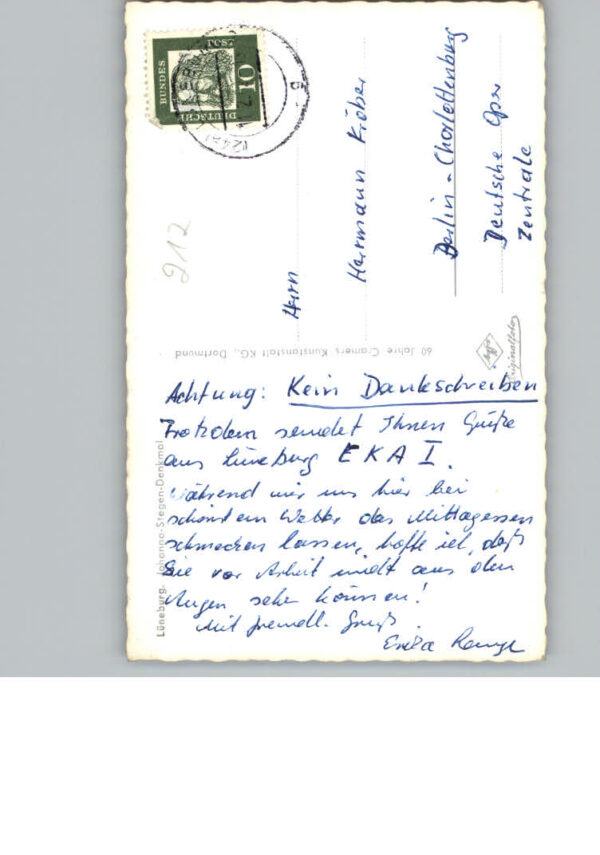 Achtung: Kein Dankschreiben
Trotzdem sendet Ihnen Grüße
aus Lüneburg EKA I.
Während wir uns hier bei
schönstem Wetter das Mittagessen
schmecken lassen, hoffe ich, daß
Sie vor Arbeit nicht aus den
Augen sehen können!
Mit freundl. Gruß
Erika
Herrn
Herrmann Kröber
Berlin-Charlottenburg
Deutsche Oper
Zentrale
212
DEUTSCHE
BUNDES
POST
10
60 Jahre Cramers Kunstanstalt KG., Dortmund
Agfa
Originalfoto
Lüneburg, Johanna-Stegen-Denkmal